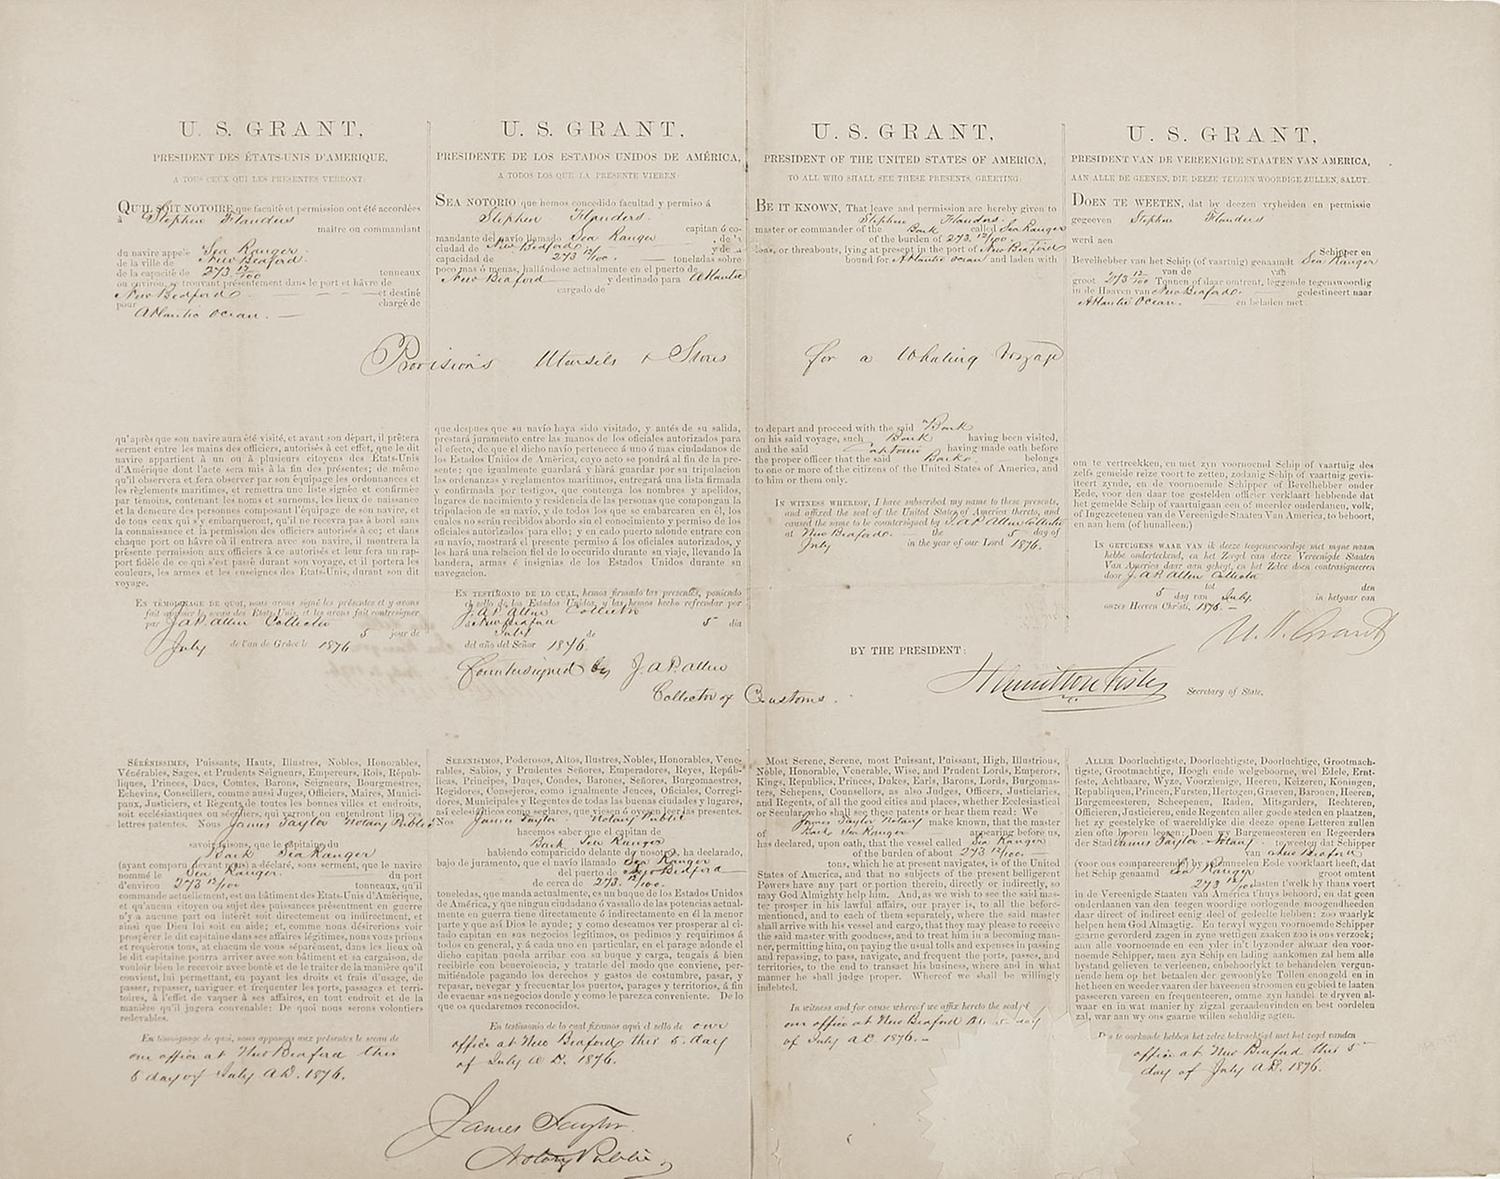 U. S. GRANT,
PRESIDENT DES ÉTATS-UNIS D'AMERIQUE,
A TOUS CEUX QUI LES PRESENTES VERRONT:
QU'IL SOIT NOTOIRE que faculté et permission ont été accordées
à Stephen Flanders
maitre ou commandant
du navire appelé Sea Ranger
de la ville de New Bedford
de la capacité de 273 12/100 tonneaux
ou environ, se trouvant présentement dans le port et hâvre de
New Bedford et destiné
pour chargé de
Atlantic Ocean.
U. S. GRANT,
PRESIDENTE DE LOS ESTADOS UNIDOS DE AMÉRICA,
A TODOS LOS QUE LA PRESENTE VIEREN:
SEA NOTORIO que hemos concedido facultad y permiso á
Stephen Flanders. capitan ó co-
mandante del navío llamado Sea Ranger, de la
ciudad de New Bedford y de
capacidad de 273 12/100 toneladas sobre
poco mas ó menas, hallándose actualmente en el puerto de
New Bedford y destinado para Atlantic
cargado de
U. S. GRANT,
PRESIDENT OF THE UNITED STATES OF AMERICA,
TO ALL WHO SHALL SEE THESE PRESENTS, GREETING:
BE IT KNOWN, That leave and permission are hereby given to
Stephen Flanders.
master or commander of the Bark called Sea Ranger
of the burden of 273 12/100
tons, or threabouts, lying at present in the port of New Bedford
bound for Atlantic Ocean and laden with
U. S. GRANT,
PRESIDENT VAN DE VEREENIGDE STAATEN VAN AMERICA,
AAN ALLE DE GEENEN, DIE DEEZE TEEGEN WOORDIGE ZULLEN, SALUT.
DOEN TE WEETEN, dat by deezen vryheiden en permissie
gegeeven Stephen Flanders
werd aen
Schipper en
Bevelhebber van het Schip (of vaartuig) genaamdt Sea Ranger
van de van
groot 273 12/100 Tonnen of daar omtrent, leggende tegenswoordig
in de Haaven van New Bedford. gedestineert naar
Atlantic Ocean. en beladen met
Provisions Utensils & Stores for a Whaling Voyage
qu'après que son navire aura été visité, et avant son départ, il prêtera
serment entre les mains des officiers, autorisés à cet effet, que le dit
navire appartient à un ou à plusieurs citoyens des États-Unis
d'Amérique dont l'acte sera mis à la fin des présentes; de même
qu'il observera et fera observer par son équipage les ordonnances et
les règlements maritimes, et remettra une liste signée et confirmée
par témoins, contenant les noms et surnoms, les lieux de naissance
et la demeure des personnes composant l'équipage de son navire, et
de tous ceux qui s'y embarqueront, qu'il ne recevra pas à bord sans
la connaissance et la permission des officiers autorisés à ce; et dans
chaque port ou hâvre où il entrera avec son navire, il montrera la
présente permission aux officiers à ce autorisés et leur fera un rap-
port fidèle de ce qui s'est passé durant son voyage, et il portera les
couleurs, les armes et les enseignes des États-Unis, durant son dit
voyage.
EN TÉMOIGNAGE DE QUOI, nous avons signé les présentes et y avons
fait apposer le sceau des États-Unis, et les avons fait contresigner
par J. A. P. Allen Collector
5 jour de
July de l'an de Grâce le 1876
que despues que su navío haya sido visitado, y antés de su salida,
prestará juramento entre las manos de los oficiales autorizados para
el efecto, de que el dicho navío pertenece á uno ó mas ciudadanos de
los Estados Unidos de América, cuyo acto se pondrá al fin de la pre-
sente; que igualmente guardará y hará guardar por su tripulacion
las ordenanzas y reglamentos marítimos, entregará una lista firmada
y confirmada por testigos, que contenga los nombres y apelidos,
lugares de nacimiento y residencia de las personas que compongan la
tripulacion de su navío, y de todos los que se embarcaren en él, los
cuales no serán recibidos abordo sin el conocimiento y permiso de los
oficiales autorizados para ello; y en cada puerto adonde entrare con
su navío, mostrará el presente permiso á los oficiales autorizados, y
les hará una relacion fiel de lo occurido durante su viaje, llevando la
bandera, armas é insignias de los Estados Unidos durante su
navegacion.
EN TESTIMONIO DE LO CUAL, hemos firmado las presentes, poniendo
el sello de los Estados Unidos, y las hemos hecho refrendar por
J. A. P. Allen Collector
New Bedford 5 dia
July de
del año del Señor 1876.
Countersigned by J. A. P. Allen
Collector of Customs.
to depart and proceed with the said Bark
on his said voyage, such Bark having been visited,
and the said Captain having made oath before
the proper officer that the said Bark belongs
to one or more of the citizens of the United States of America, and
to him or them only.
IN WITNESS WHEREOF, I have subscribed my name to these presents,
and affixed the seal of the United States of America thereto, and
caused the same to be countersigned by J. A. P. Allen Collector
at New Bedford the 5 day of
July in the year of our Lord 1876.
BY THE PRESIDENT:
Hamilton Fish
Secretary of State.
om te vertreekken, en met zyn voornoemd Schip of vaartuig des
zelfs gemelde reize voort te zetten, zodanig Schip of vaartuig gevis-
iteert zynde, en de voornoemde Schipper of Bevelhebber onder
Eede, voor den daar toe gestelden officier verklaart hebbende dat
het gemelde Schip of vaartuigaan een of meerder onderdanen, volk,
of Ingezeetenen van de Vereenigde Staaten Van America, to behoort,
en aan hem (of hunalleen.)
IN GETUIGENS WAAR VAN ik deeze teegenswoordige met myne naam
hebbe onderteekend, en het Zeegel van deeze Vereenigde Staaten
Van America daar aan gehegt, en het Zelve doen contrasigneeren
door J. A. P. Allen Collector
tot den
5 dag van July. in hetjaar van
onzes Heeren Christi, 1876.
U. S. Grant
SÉRÉNISSIMES, Puissants, Hauts, Illustres, Nobles, Honorables,
Vénérables, Sages, et Prudents Seigneurs, Empereurs, Rois, Répub-
liques, Princes, Ducs, Comtes, Barons, Seigneurs, Bourgmestres,
Echevins, Conseillers, comme aussi Juges, Officiers, Maires, Munici-
paux, Justiciers, et Regents, de toutes les bonnes villes et endroits,
soit ecclésiastiques ou séculiers, qui verront ou entendront lire ces
lettres patentes. Nous James Taylor Notary Public
savoir faisons, que le capitaine du
Bark Sea Ranger
(ayant comparu devant nous) a déclaré, sous serment, que le navire
nommé le Sea Ranger. du port
d'environ 273 12/100 tonneaux, qu'il
commande actuellement, est un bâtiment des États-Unis d'Amérique,
et qu'aucun citoyen ou sujet des puissances présentement en guerre
n'y a aucune part ou intérêt soit directement ou indirectement, et
ainsi que Dieu lui soit en aide; et, comme nous désirerions voir
prospérer le dit capitaine dans ses affaires légitimes, nous vous prions
et requerons tous, at chacun de vous séparément, dans les lieux où
le dit capitaine pourra arriver avec son bâtiment et sa cargaison, de
vouloir bien le recevoir avec bonté et de le traiter de la manière qu'il
convient, lui permettant, en payant les droits et frais d'usage, de
passer, repasser, naviguer et frequenter les ports, passages et terri-
toires, à l'effet de vaquer à ses affaires, en tout endroit et de la
manière qu'il jugera convenable: De quoi nous serons volontiers
redevables.
En témoignage de quoi, nous apposons aux présentes le sceau de
our office at New Bedford this
5 day of July A.D. 1876.
SERENISIMOS, Poderosos, Altos, Ilustres, Nobles, Honorables, Vene-
rables, Sabios, y Prudentes Señores, Emperadores, Reyes, Repúb-
licas, Principes, Duqes, Condes, Barones, Señores, Burgomaestros,
Regidores, Consejeros, como igualmente Jeuces, Oficiales, Corregi-
dores, Municipales y Regentes de todas las buenas ciudades y lugares,
así eclesiásticos como seglares, que viesen ó oyeren las presentes.
Nos James Taylor Notary Public
hacemos saber que el capitan de
Bark Sea Ranger
habiendo comparecido delante de nosotros, ha declarado,
bajo de juramento, que el navio llamado Sea Ranger
del puerto de New Bedford
de cerca de 273. 12/100.
toneledas, que manda actualmente, es un buque de los Estados Unidos
de América, y que ningun ciudadano ó vasallo de las potencias actual-
mente en guerra tiene directamente ó indirectamente en él la menor
parte y que así Dios le ayude; y como descamos ver prosperar al ci-
tado capitan en sus negocios legítimos, os pedimos y requerimos á
todos en general, y á cada uno en particular, en el parage adonde el
dicho capitan puela arribar con su buque y carga, tengais á bien
recibirle con benevolencia, y tratarle del modo que conviene, per-
mitiéndole pagando los derechos y gastos de costumbre, pasar, y
repasar, nevegar y frecuentar los puertos, parages y territorios, á fin
de evacuar sus negocios donde y como le parezca conveniente. De lo
que os quedaremos reconocidos.
En testimonio de lo cual fixamos aqui el sello de our
office at New Bedford this 5. day
of July A. D. 1876.
James Taylor.
Notary Public
Most Serene, Serene, most Puissant, Puissant, High, Illustrious,
Noble, Honorable, Venerable, Wise, and Prudent Lords, Emperors,
Kings, Republics, Princes, Dukes, Earls, Barons, Lords, Burgomas-
ters, Schepens, Counsellors, as also Judges, Officers, Justiciaries,
and Regents, of all the good cities and places, whether Ecclesiastical
or Secular, who shall see these patents or hear them read: We
James Taylor Notary make known, that the master
of Bark Sea Ranger appearing before us,
has declared, upon oath, that the vessel called Sea Ranger
of the burden of about 273 12/100.
tons, which he at present navigates, is of the United
States of America, and that no subjects of the present belligerent
Powers have any part or portion therein, directly or indirectly, so
may God Almighty help him. And, as we wish to see the said mas-
ter prosper in his lawful affairs, our prayer is, to all the before-
mentioned, and to each of them separately, where the said master
shall arrive with his vessel and cargo, that they may please to receive
the said master with goodness, and to treat him in a becoming man-
ner, permitting him, on paying the usual tolls and expenses in passing
and repassing, to pass, navigate, and frequent the ports, passes, and
territories, to the end to transact his business, where and in what
manner he shall judge proper. Whereof we shall be willingly
indebted.
In witness and for cause whereof we affix hereto the seal of
our office at New Bedford this 5 day
of July A.D. 1876.
ALLER Doorluchtigste, Doorluchtigste, Doorluchtige, Grootmach-
tigste, Grootmachtige, Hoogh ende welgeboorne, wel Edele, Ernt-
feste, Achtbaare, Wyze, Voorsienige Heeren, Keizeren, Köningen,
Republiquen, Princen, Fursten, Hertogen, Graeven, Baronen, Heeren,
Burgemeesteren, Scheepenen, Raden, Mitsgarders, Rechteren,
Officieren, Justicieren, ende Regenten aller goede steden en plaatzen,
het zy geestelyke of waereldlyke die deeze opene Letteren zullen
zien ofte hooren leezen: Doen wy Burgemeesteren en Regeerders
der Stad James Taylor Notary te weeten dat Schipper
van New Bedford,
(voor ons compareerende) by solemneelen Eede voorklaart heeft, dat
het Schip genaamd Sea Ranger groot omtent
273 12/100 lasten 't welk hy thans voert
in de Vereenigde Staaten van America t'huys behoord, en dat geen
onderdaanen van den teegen woordige oorlogende moogendheeden
daar direct of indirect eenig deel of gedeelte hebben: zoo waarlyk
helpen hem God Almagtig. En terwyl wygen voornoemde Schipper
gaarne gevorderd zagen in zyne wettigen zaaken zoo is ons verzoek;
aan alle voornoemde en een yder in't byzonder alwaar den voor-
noemde Schipper, men zyn Schip en lading aankomen zal hem alle
bystand gelieven te verleenen, enbehoorlykt te behandelen vergun-
nende hem op het betaalen der gewoonlyke Tollen enongeld en in
het heen en weeder vaaren der haveenen stroomen en gebied te laaten
passeeren vareen en frequenteeren, omme zyn handel te dryven al-
waar en in wat manier hy zigzal geraadenvinden en best oordeelen
zal, war aan wy ons gaarne willen schuldig agten.
te oorkonde hebben het zelve bekrachtigd met het zegel vanden
office at New Bedford this 5
day of July A.D. 1876.